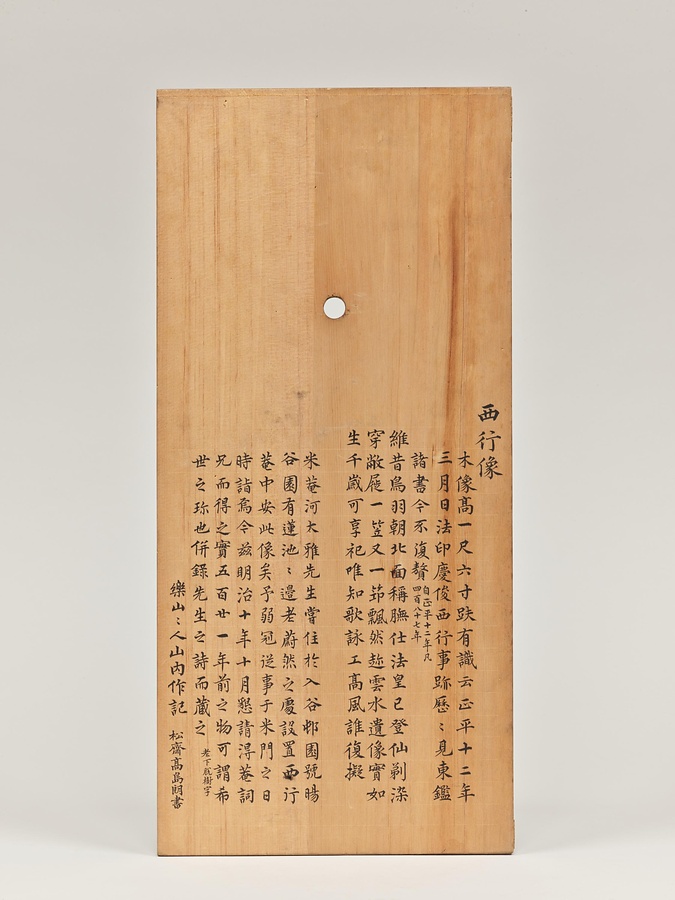 西行像
木像高一尺六寸趺有識云正平十二年
三月日法印慶俊西行事跡歷〻見東鑑
諸書今不復贅自正平十二年凡四百八十七年
維昔鳥羽朝北面稱膴仕法皇已登仙剃染
穿敝屐一笠又一笻飄然趂雲水遺像實如
生千歲可享祀唯知歌詠工高風誰復擬
米菴河大雅先生嘗住於入谷邨園號暘
谷園有蓮池〻邊老蔚然之處設置西行
菴中安此像矣予弱冠從事于米門之日
時詣焉今茲明治十年十月懇請淂菴詞
兄而得之實五百廿一年前之物可謂希
世之珎也併錄先生之詩而藏之
老下脱樹字
樂山〻人山内作記
松齋高島朗書